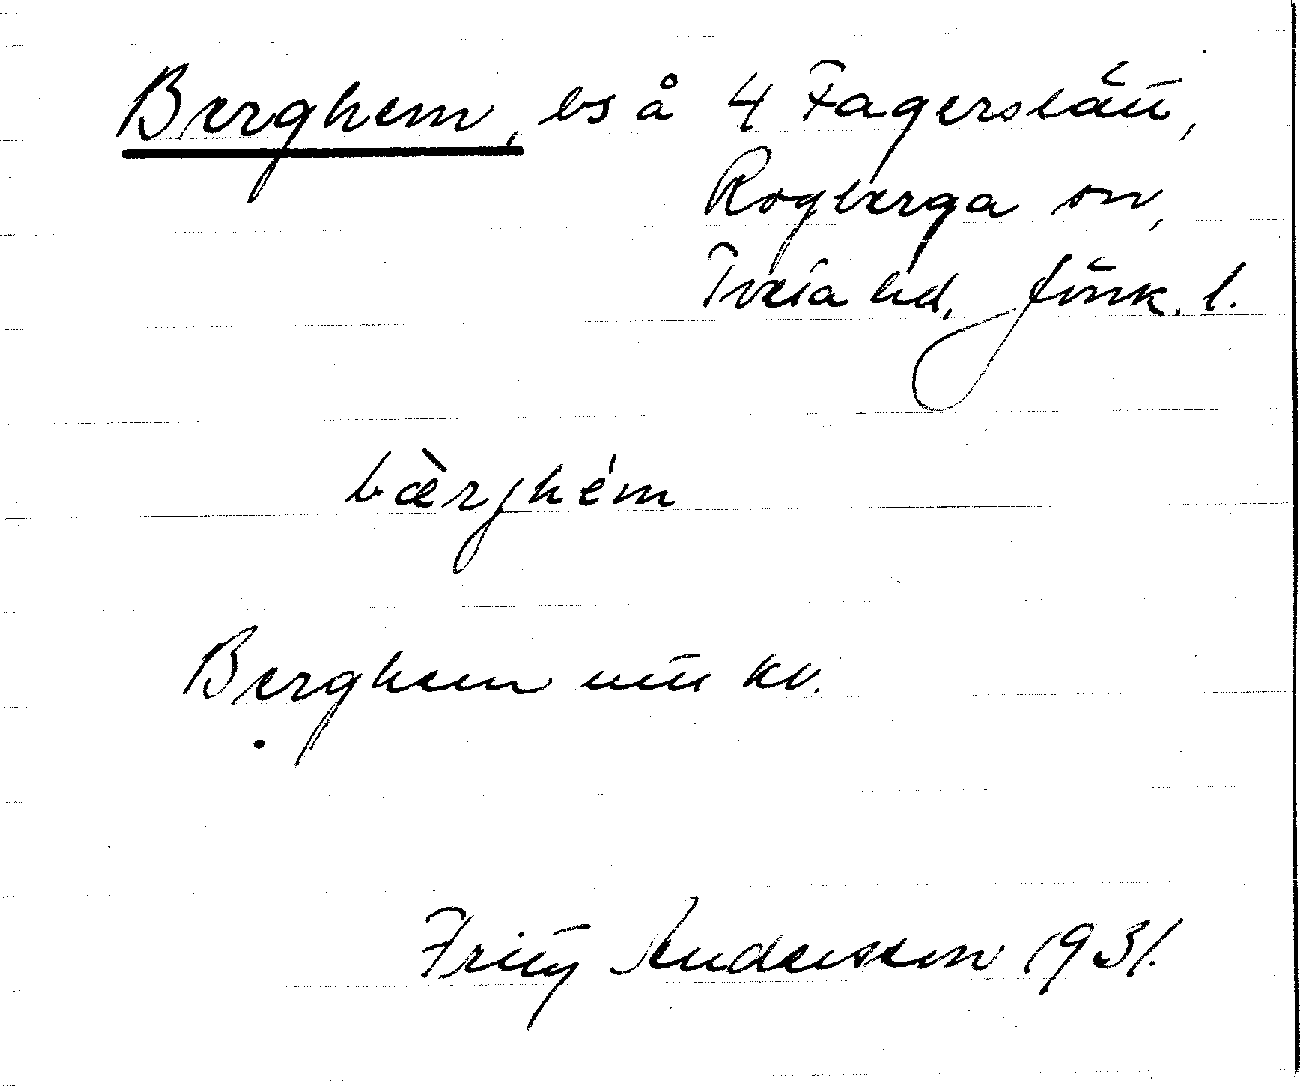 Berghem, bs å 4 Fagerslätt,
Rogberga sn,
Tveta hd, Jönk. l.
bæ̀rjhém
Berghem utu kv.
Fritz Andersson 1931.